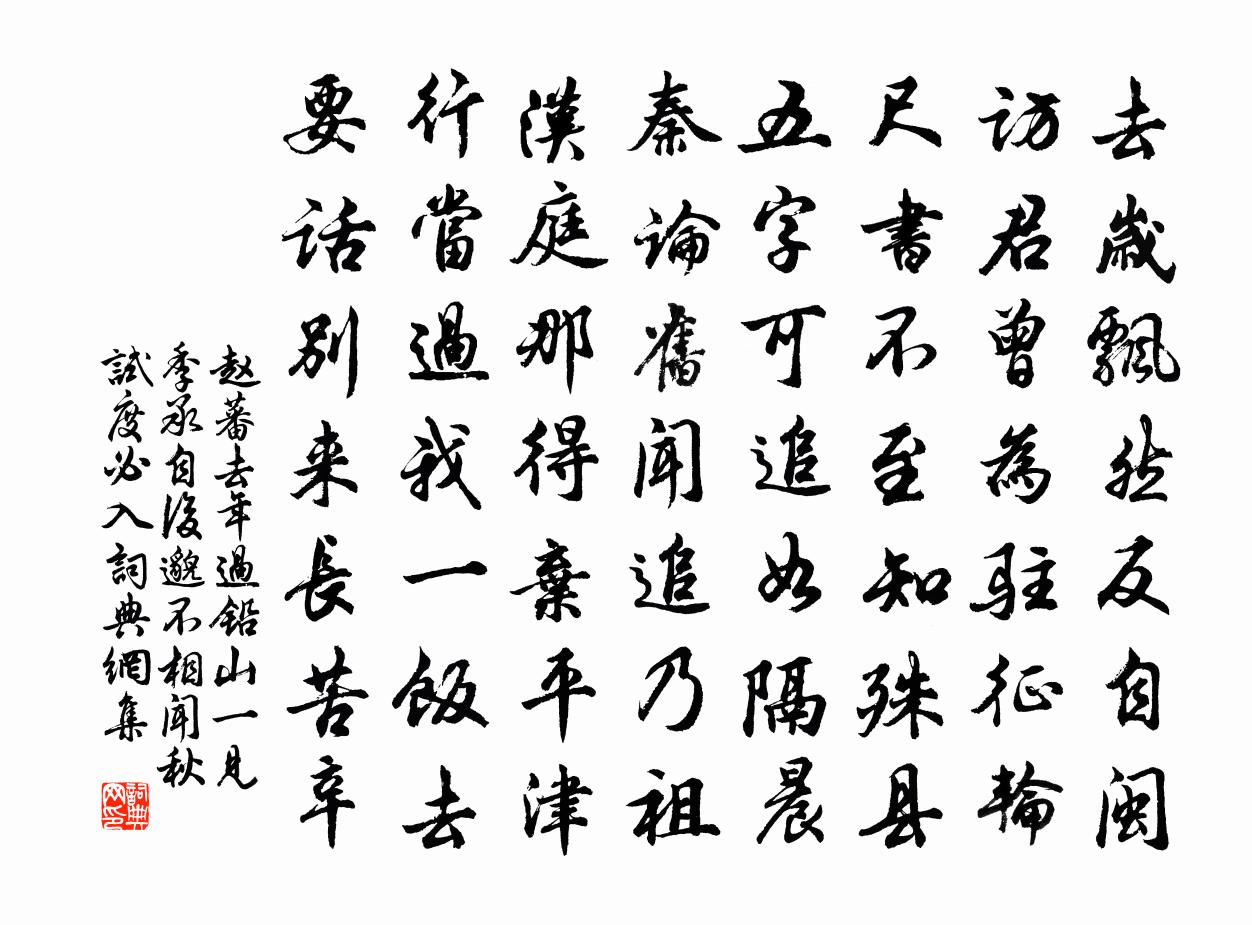 去歲飄然反自闽
訪君曾為駐征輪
尺書不至知殊县
五字可追如隔晨
秦論舊聞追乃祖
漢庭那得棄平津
行當過我一飯去
要話别来長苦辛
赵蕃去年過鉛山一見
季承自後邈不相聞秋
試度必入詞典網集
詞典网印